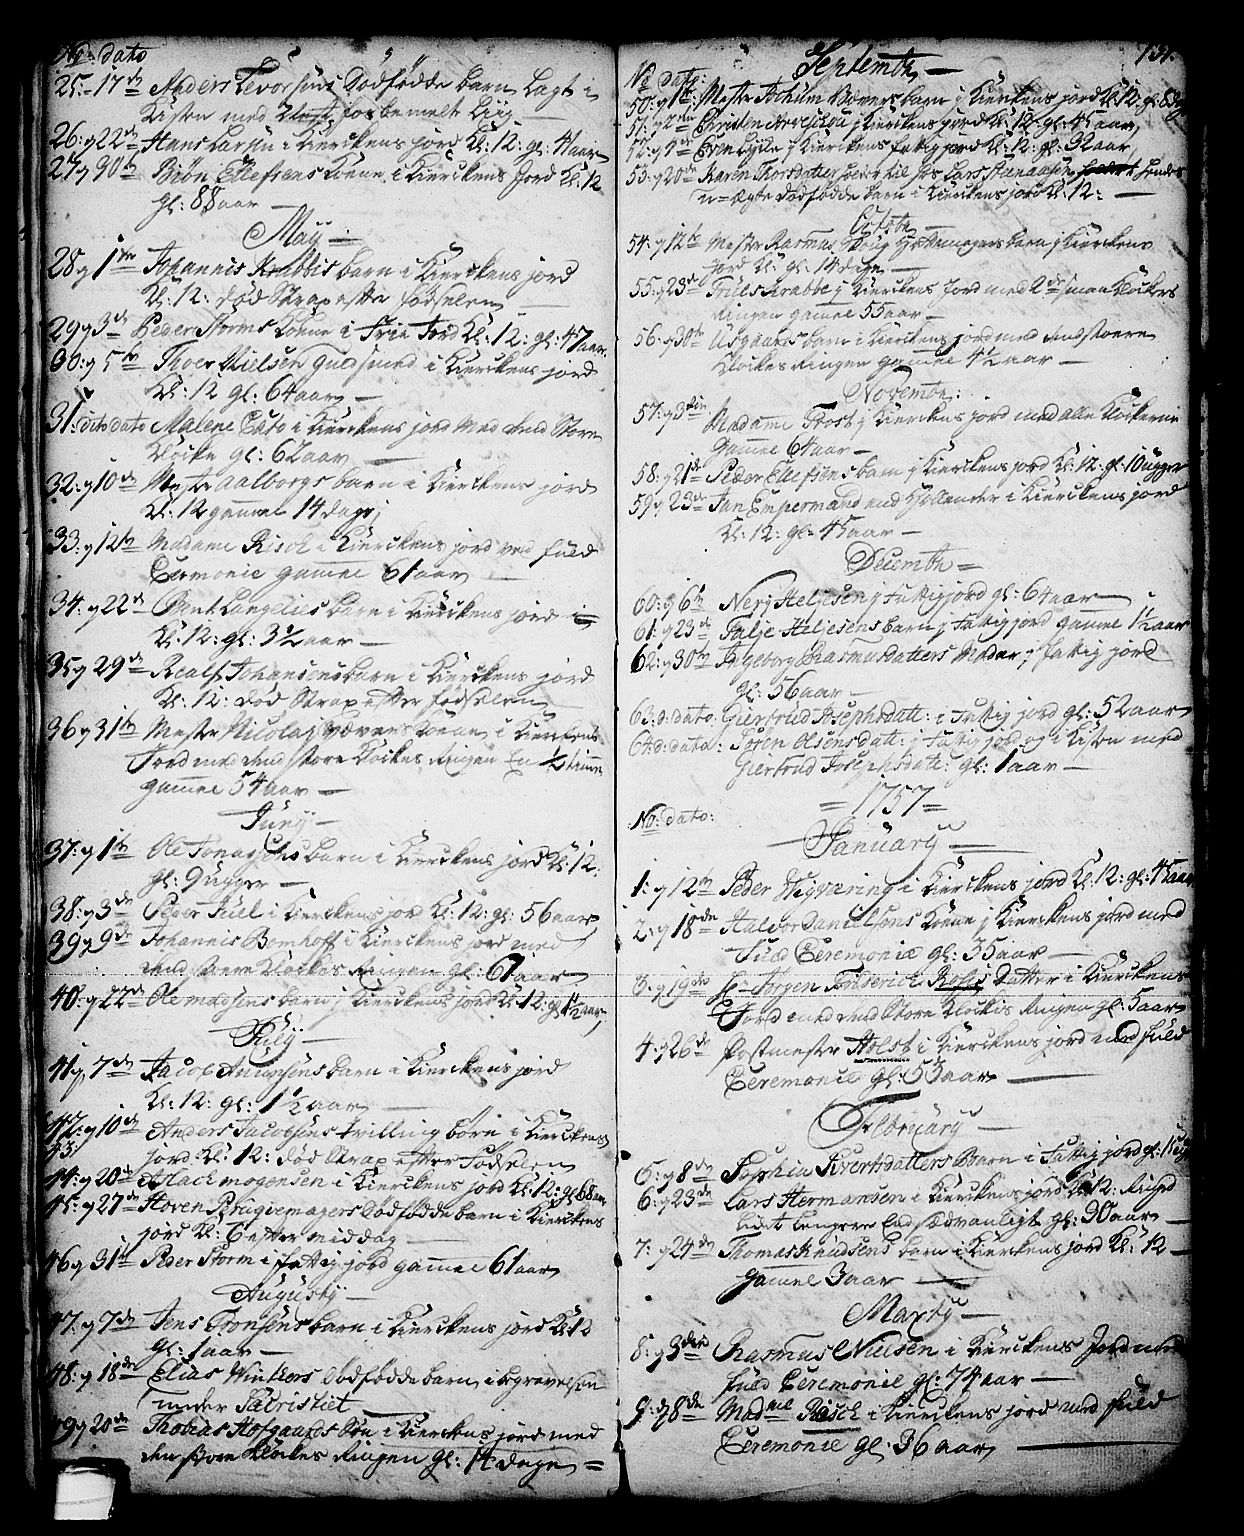 No: dato
25.-17de Anders Levorsens Dødfødde barn Lagt i
Kisten med forbemelt Liig —
26: 22de Hans Larsen i Kierckens jord Kl: 12: gl: 41 aar
27 30te Biøn Ellefsens Kone i Kierckens Jord Kl: 12
gl: 88 aar —
May —
28 1te Johannis Krabbis barn i Kierckens jord
Kl: 12: død Strax efter fødselen —
29 3de Peder Storms Kone i Frie Jord Kl: 12: gl: 47 aar
30: 5te Thoer Nielsen guldsmed i Kierckens jord
Kl: 12 gl: 64 aar —
31: dito dato Malene Cato i Kierckens jord med dend Store
Klocke gl: 62 aar —
32: 10de Mester Aalborgs barn i Kierckens jord
Kl: 12 gammel 14 dage
33: 12te Madame Risch i Kierckens jord ved fuld
Cermonie gamel 61 aar —
34: 22de Bent Langelies barn i Kierckens jord
Kl: 12: gl: 3 1/2 aar —
35 29de Realf Johansens barn i Kierckens jord
Kl: 12: død Strax efter fødselen
36 31te Mester Nicolaj Vævers Kone i Kierckens
Jord med dend store Klockes Ringen En 1/2 time
gammel 54 aar —
Juny —
37: 1te Ole Jonassens barn i Kierckens jord Kl: 12:
gl: 9 uger —
38: 3de Peder Juel i Kierckens jord Kl: 12: gl: 56 aar
39 9de Johannis Bomhoff i Kierckens jord med
dend store Klockes Ringen gl: 67 aar
40: 22de Ole Madsens barn j Kierckens jord Kl: 12: gl 1 1/2 aar,
July —
41 7de Jacob Anundsens barn i Kierckens jord
Kl: 12: gl: 1 1/2 aar —
42: 10de Anders Jacobsens tvilling børn i Kierckens
43: jord Kl: 12: død Strax efter Fødselen
44: 20de Aslach mogensen i Kierckens jord Kl: 12: gl 68 aar
45: 27de Hoven Perugvemagers Dødfødde barn i Kierckens
jord Kl: 6 efter middag —
46 31te Peder Storm i fattig jord gammel 61 aar
Augusty —
47. 7de Jens Tronsens barn i Kierckens jord Kl: 12
gl: 1 aar —
48: 18de Elias Winters Dødfødde barn i begravelsen
under Sacristiet —
49 20de Thobias Hofgaards Søn i Kierckens jord med
den store Klockes Ringen gl: 14 dage =
131.
Septembr —
No dato:
50: 1te: Mester Achum Vævers barn j Kierckens jord Kl: 12: gl: 8
51: 2den Christen Arveschou j Kierckens jord Kl: 12: gl: 45 aar,
52: Even Lyche j Kierckens fattig jord Kl: 12: gl: 32 aar,
53: 20de Karen Torsdatter hos Lars Hendes
u=ægte Dødfødde barn i Kierckens jord Kl: 12: —
Octobr —
54: 12te Mester Rasmus barn j Kierckens
jord Kl: gl: 14 dage —
55: 23de Truels Krabbe j Kierckens Jord med 2de smaa Klockers
Ringen gamel 55 aar —
56: 30te Usgaards barn i Kierckens jord med dend store
Klockes Ringen gammel 4 1/2 aar —
Novembr:
57: 3die Madame Frost j Kierckens jord med alle Klockerne
gamel 64 aar —
58: 21de Peder Ellefsens barn j Kierckens jord Kl: 12: gl: 10 uger
59 23de Jan Empermand end Hollender i Kierckens jord
Kl: 12: gl: 45 aar —
Decembr =
60: 6te Nerj Heljesen j Fattig jord gl: 64 aar —
61: 23de Talje Heljesens barn j Fattig jord gammel 1 1/2 aar
62: 30te Ingeborg Rasmusdatters Moder j fattig jord
gl: 56 aar —
63: d: dato Giertrud Josephsdatt: i Fattig jord gl: 52 aar
64 d: dato: Søren Olsensdatt: j Fattig jord og i Kiste med
Giertrud Josephsdatt: gl: 1 aar —
= 1757 =
No: dato:
January —
1: 12te Peder Wigværing i Kierckens jord Kl: 12: gl: 45 aar
2: 18de Halvor Danielsens Kone j Kierckens jord med
Fuld Ceremonie gl: 35 aar —
3: 19de Hr Jørgen Friderich Rosis Datter i Kierckens
Jord med dend Store Klockis Ringen gl: 5 aar
4: 26de Postmester Holst i Kierckens jord med fuld
Ceremonie gl: 55 aar —
February —
5: 8de Sophia Sivertsdatters Barn i Fattig jord gl: 11 uger
6: 23de Lars Hermansen i Kierckens jord Kl: 12: Ringed
Lidet Længere End sædvanligt gl: 90 aar —
7: 24de Thomas Knudsens barn i Kierckens jord Kl: 12 —
gamel 3 aar —
Marty —
8: 3die Rasmus Nielsen i Kierckens Jord med
fuld Ceremonie gl: 74 aar —
9: 8de Madme Risch i Kierckens jord med fuld
Ceremonie gl: 36 aar —